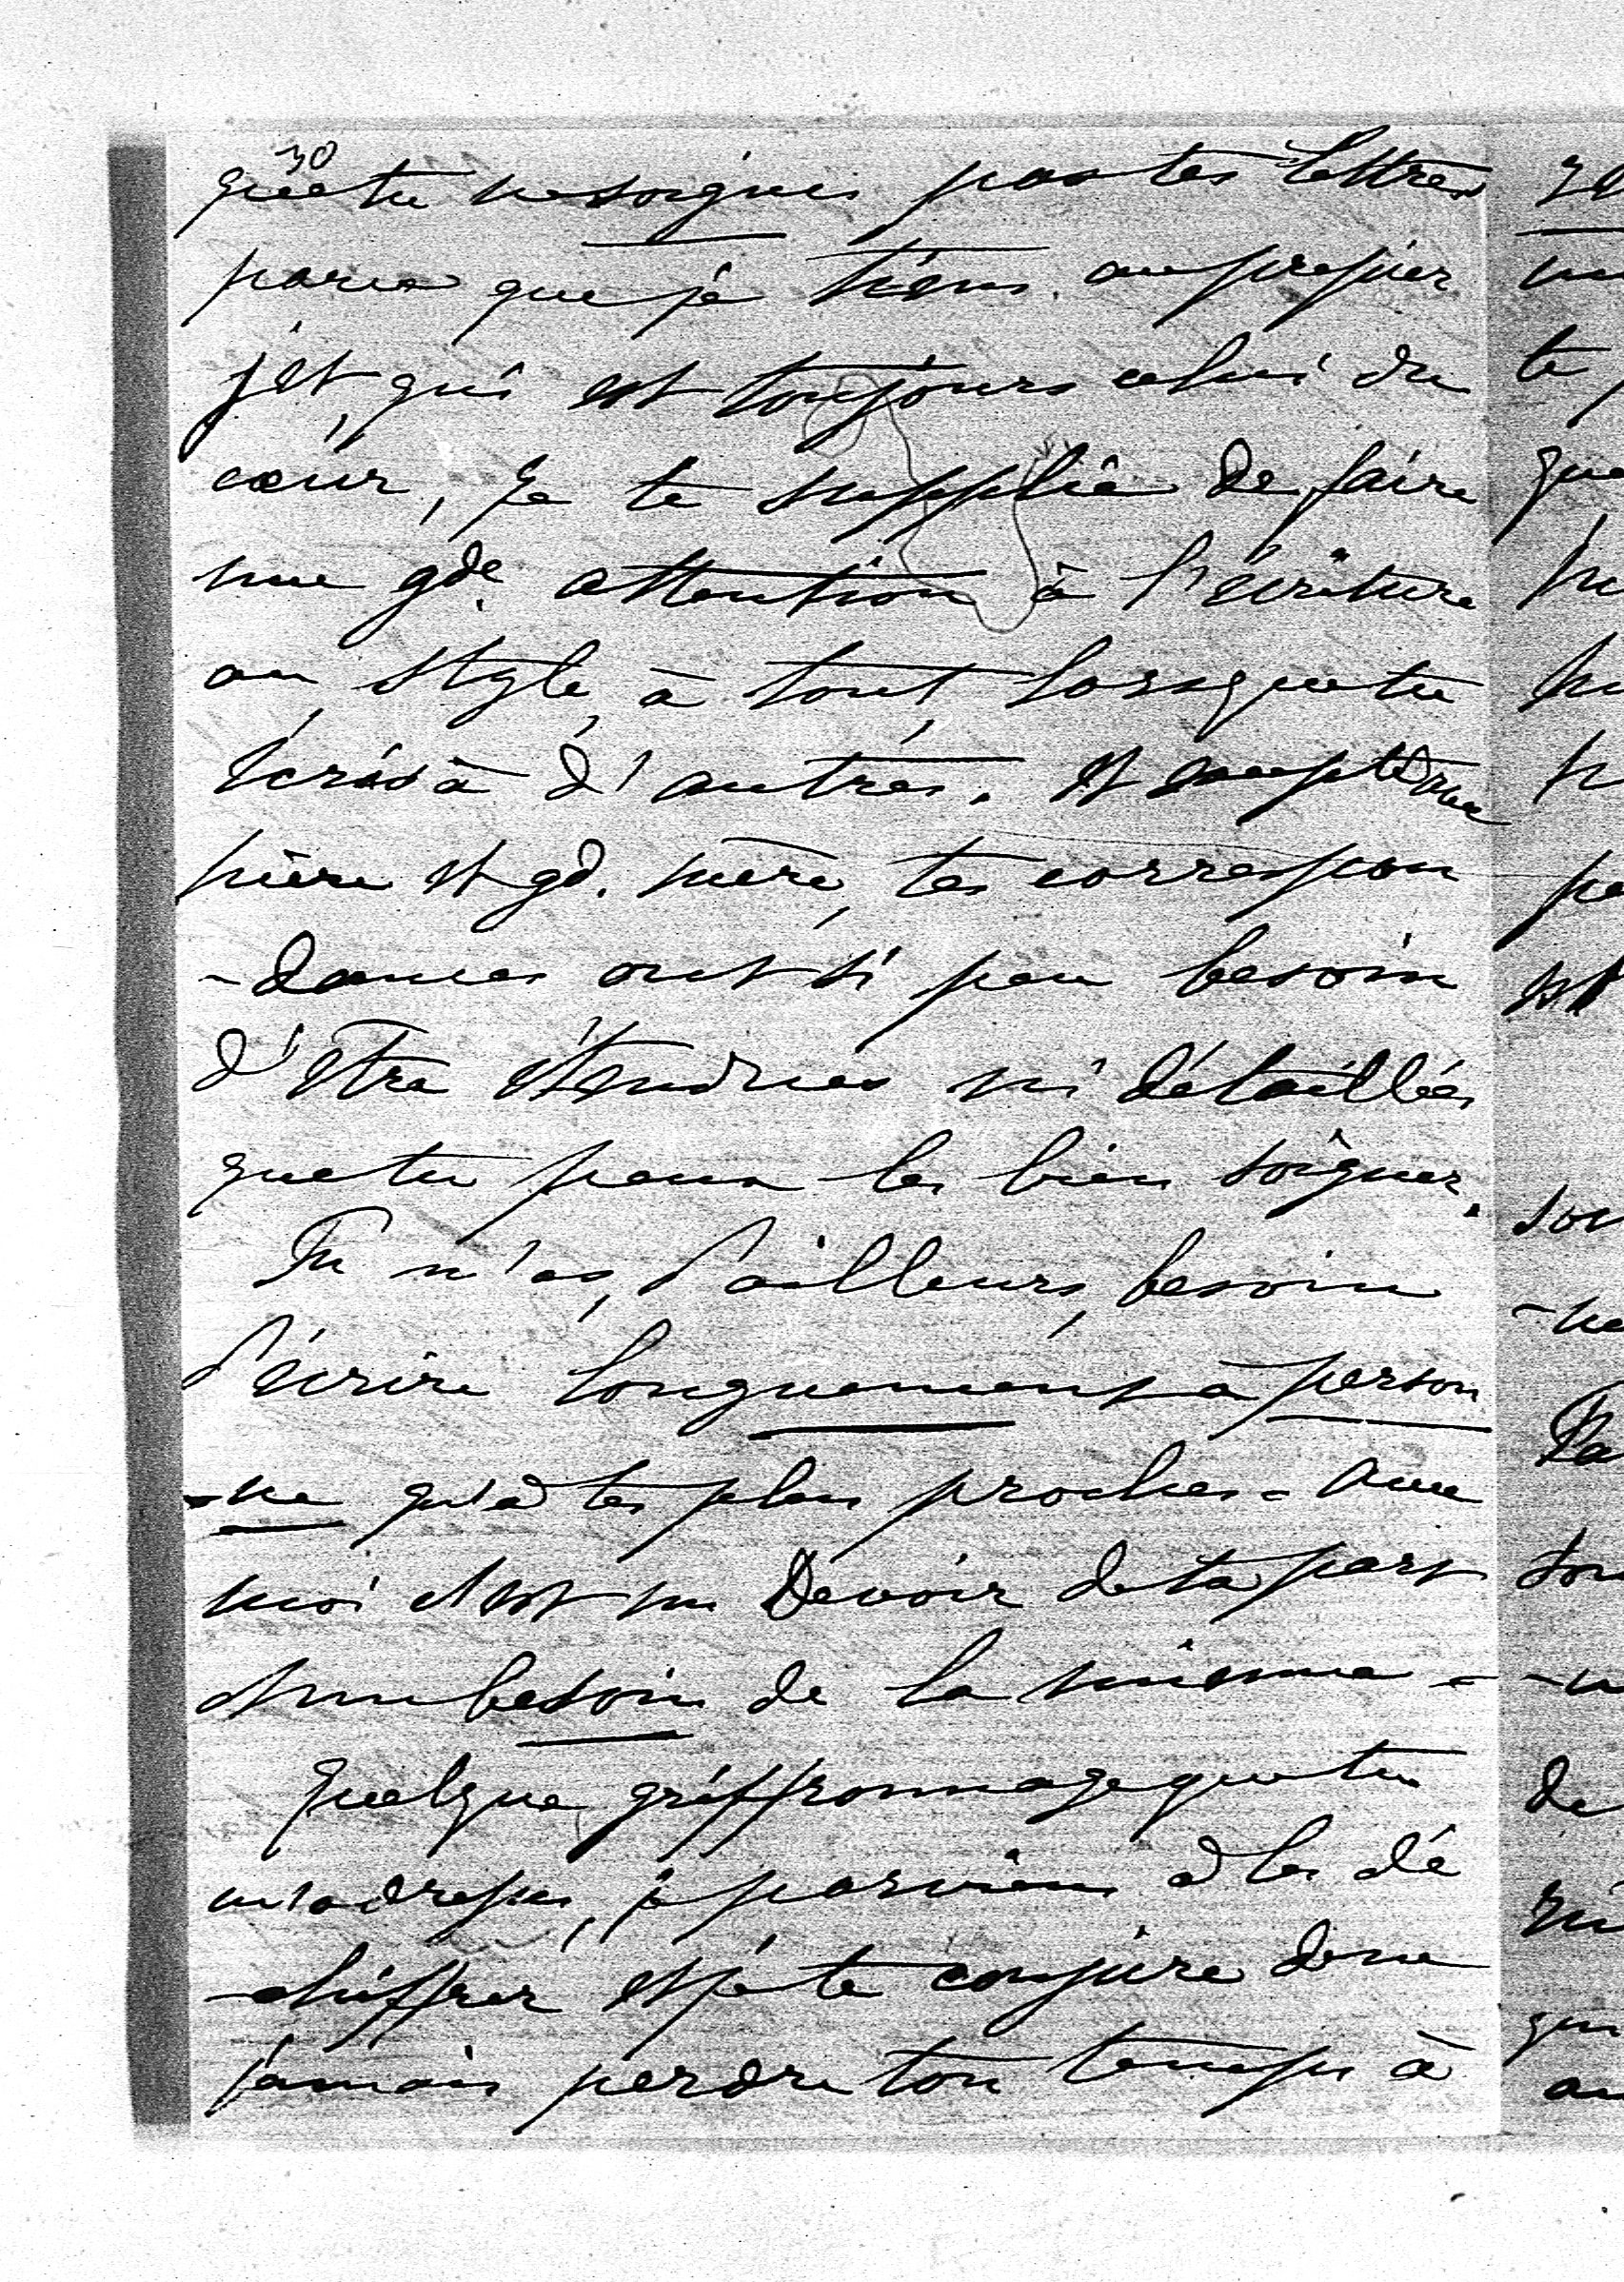 30
que tu ne soignes pas tes lettres
parce que je tiens au premier
jet, qui est toujours celui du
cœur, je te supplie de faire
une gde. attention à l'écriture
au style, à tout, lorsque tu
écris à d'autres. Et excepté ton
père et gd. mère, tes correspon
-dances ont si peu besoin
d'être étendues ni détaillées
que tu peux les bien soigner.
Tu n'as, d'ailleurs, besoin
d'écrire longuement à person
-ne qu'à tes plus proches = avec
moi c'est un Devoir de ta part
et un besoin de la mienne =
Quelque griffonnage que tu
m'adresses, je parviens à les dé
-chiffrer et je te conjure de ne
jamais perdre ton temps à